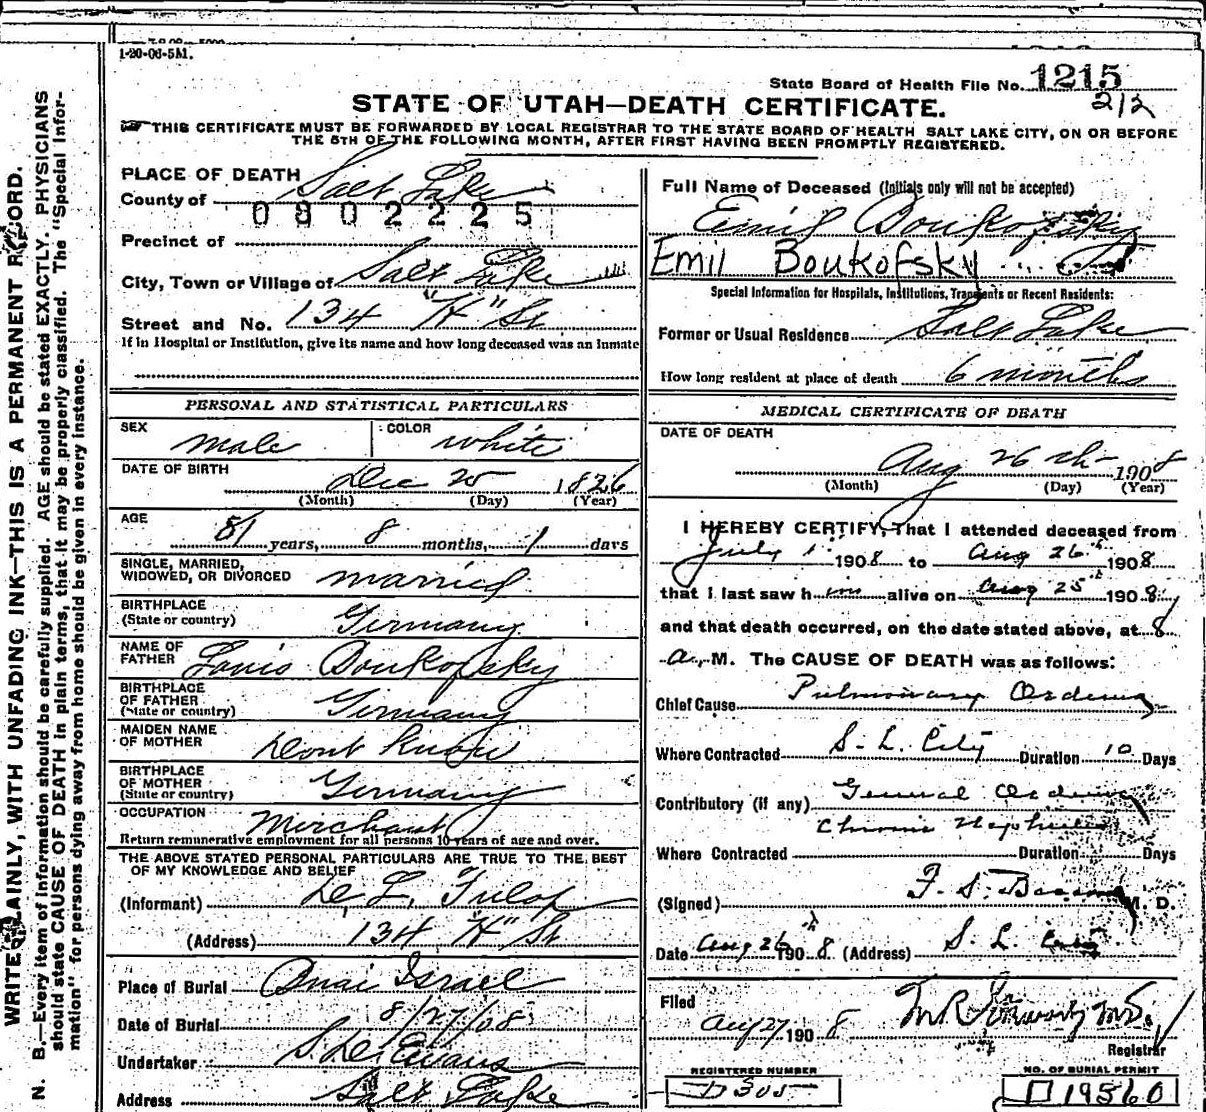 1-20-06-5M.
State Board of Health File No. 1215
212
STATE OF UTAH—DEATH CERTIFICATE.
THIS CERTIFICATE MUST BE FORWARDED BY LOCAL REGISTRAR TO THE STATE BOARD OF HEALTH SALT LAKE CITY, ON OR BEFORE
THE 5TH OF THE FOLLOWING MONTH, AFTER FIRST HAVING BEEN PROMPTLY REGISTERED.
WRITE PLAINLY, WITH UNFADING INK—THIS IS A PERMANENT RECORD.
N. B.—Every item of information should be carefully supplied. AGE should be stated EXACTLY. PHYSICIANS
should state CAUSE OF DEATH in plain terms, that it may be properly classified. The "Special Infor-
mation" for persons dying away from home should be given in every instance.
PLACE OF DEATH
County of Salt Lake
0802225
Precinct of
City, Town or Village of Salt Lake
Street and No. 134 "H" St
If in Hospital or Institution, give its name and how long deceased was an inmate
PERSONAL AND STATISTICAL PARTICULARS
SEX male COLOR white
DATE OF BIRTH
Dec 25 1826
(Month) (Day) (Year)
AGE
81 years, 8 months, 1 days
SINGLE, MARRIED,
WIDOWED, OR DIVORCED married
BIRTHPLACE
(State or country) Germany
NAME OF
FATHER Louis Boukofsky
BIRTHPLACE
OF FATHER
(State or country) Germany
MAIDEN NAME
OF MOTHER Dont Know
BIRTHPLACE
OF MOTHER
(State or country) Germany
OCCUPATION Merchant
Return remunerative employment for all persons 10 years of age and over.
THE ABOVE STATED PERSONAL PARTICULARS ARE TRUE TO THE BEST
OF MY KNOWLEDGE AND BELIEF
(Informant)
(Address) 134 "H" St
Place of Burial Israel
Date of Burial 8/27/08
Undertaker Evans
Address Salt Lake
Full Name of Deceased (Initials only will not be accepted)
Emil Boukofsky
Emil Boukofsky
Special Information for Hospitals, Institutions, Transients or Recent Residents:
Former or Usual Residence Salt Lake
How long resident at place of death 6 months
MEDICAL CERTIFICATE OF DEATH
DATE OF DEATH
Aug 26th 1908
(Month) (Day) (Year)
I HEREBY CERTIFY, That I attended deceased from
July 1 1908 to Aug 26th 1908
that I last saw him alive on Aug 25th 1908,
and that death occurred, on the date stated above, at 8
a. M. The CAUSE OF DEATH was as follows:
Chief Cause Pulmonary Oedema
Where Contracted S. L. City Duration 10 Days
Contributory (if any) General Oedema
Chronic Nephritis
Where Contracted Duration Days
(Signed) F. S. M. D.
Date Aug 26th 1908 (Address) S. L. City
Filed
Aug 27 1908
Registrar
REGISTERED NUMBER
D 305
NO. OF BURIAL PERMIT
D 19560